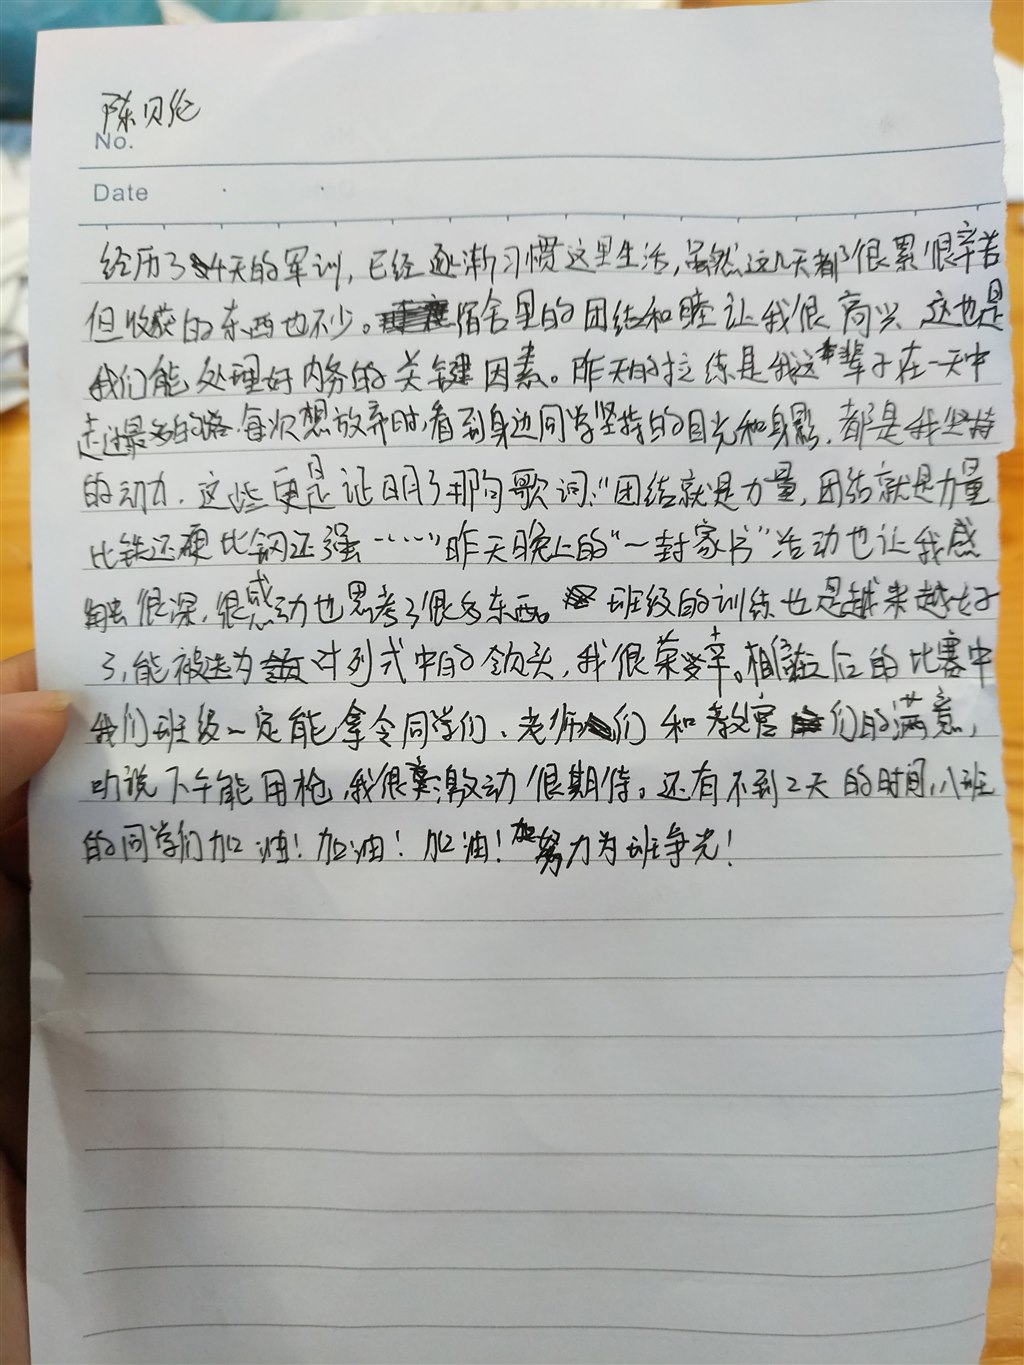 陈贝纶
No.
Date
经历了4天的军训，已经逐渐习惯这里生活，虽然这几天都很累很辛苦
但收获的东西也不少。宿舍里的团结和睦让我很高兴，这也是
我们能处理好内务的关键因素。昨天的拉练是我这辈子在一天中
走过最多的路，每次想放弃时，看到身边同学坚持的目光和身影，都是我坚持
的动力，这些更是证明了那句歌词：“团结就是力量，团结就是力量
比铁还硬比钢还强……”昨天晚上的“一封家书”活动也让我感
触很深，很感动也思考了很多东西。班级的训练也是越来越好
了，能被选为队列式中的领头，我很荣幸。相信在后的比赛中
我们班级一定能拿令同学们、老师们和教官们的满意，
听说下午能用枪，我很激动很期待。还有不到2天的时间，八班
的同学们加油！加油！加油！努力为班争光！